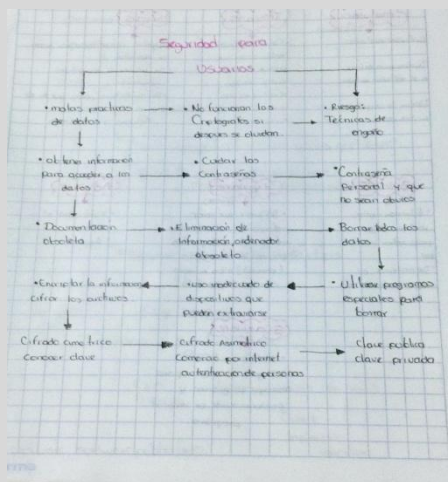 Seguridad para
Usuarios
• malas practicas
de datos
• No funcionan los
si
despues se olvidan.
• Riesgos
Tecnicas de
engaño
• obtener informacion
para acceder a los
datos
• Cuidar las
Contraseñas
• Contraseña
Personal y que
no sean obvios
• Documentacion
obsoleta
• Eliminacion de
Informacion, ordenador
obsoleto
Borrar todos los
datos
• Encriptar la informacion
cifrar los archivos
• uso inadecuado de
dispositivos que
pueden extraviarse
• Utilizar programas
especiales para
borrar
Cifrado simetrico
conocer clave
Cifrado Asimetrico
Comercio por internet
autenticacion de personas
Clave publica
clave privada